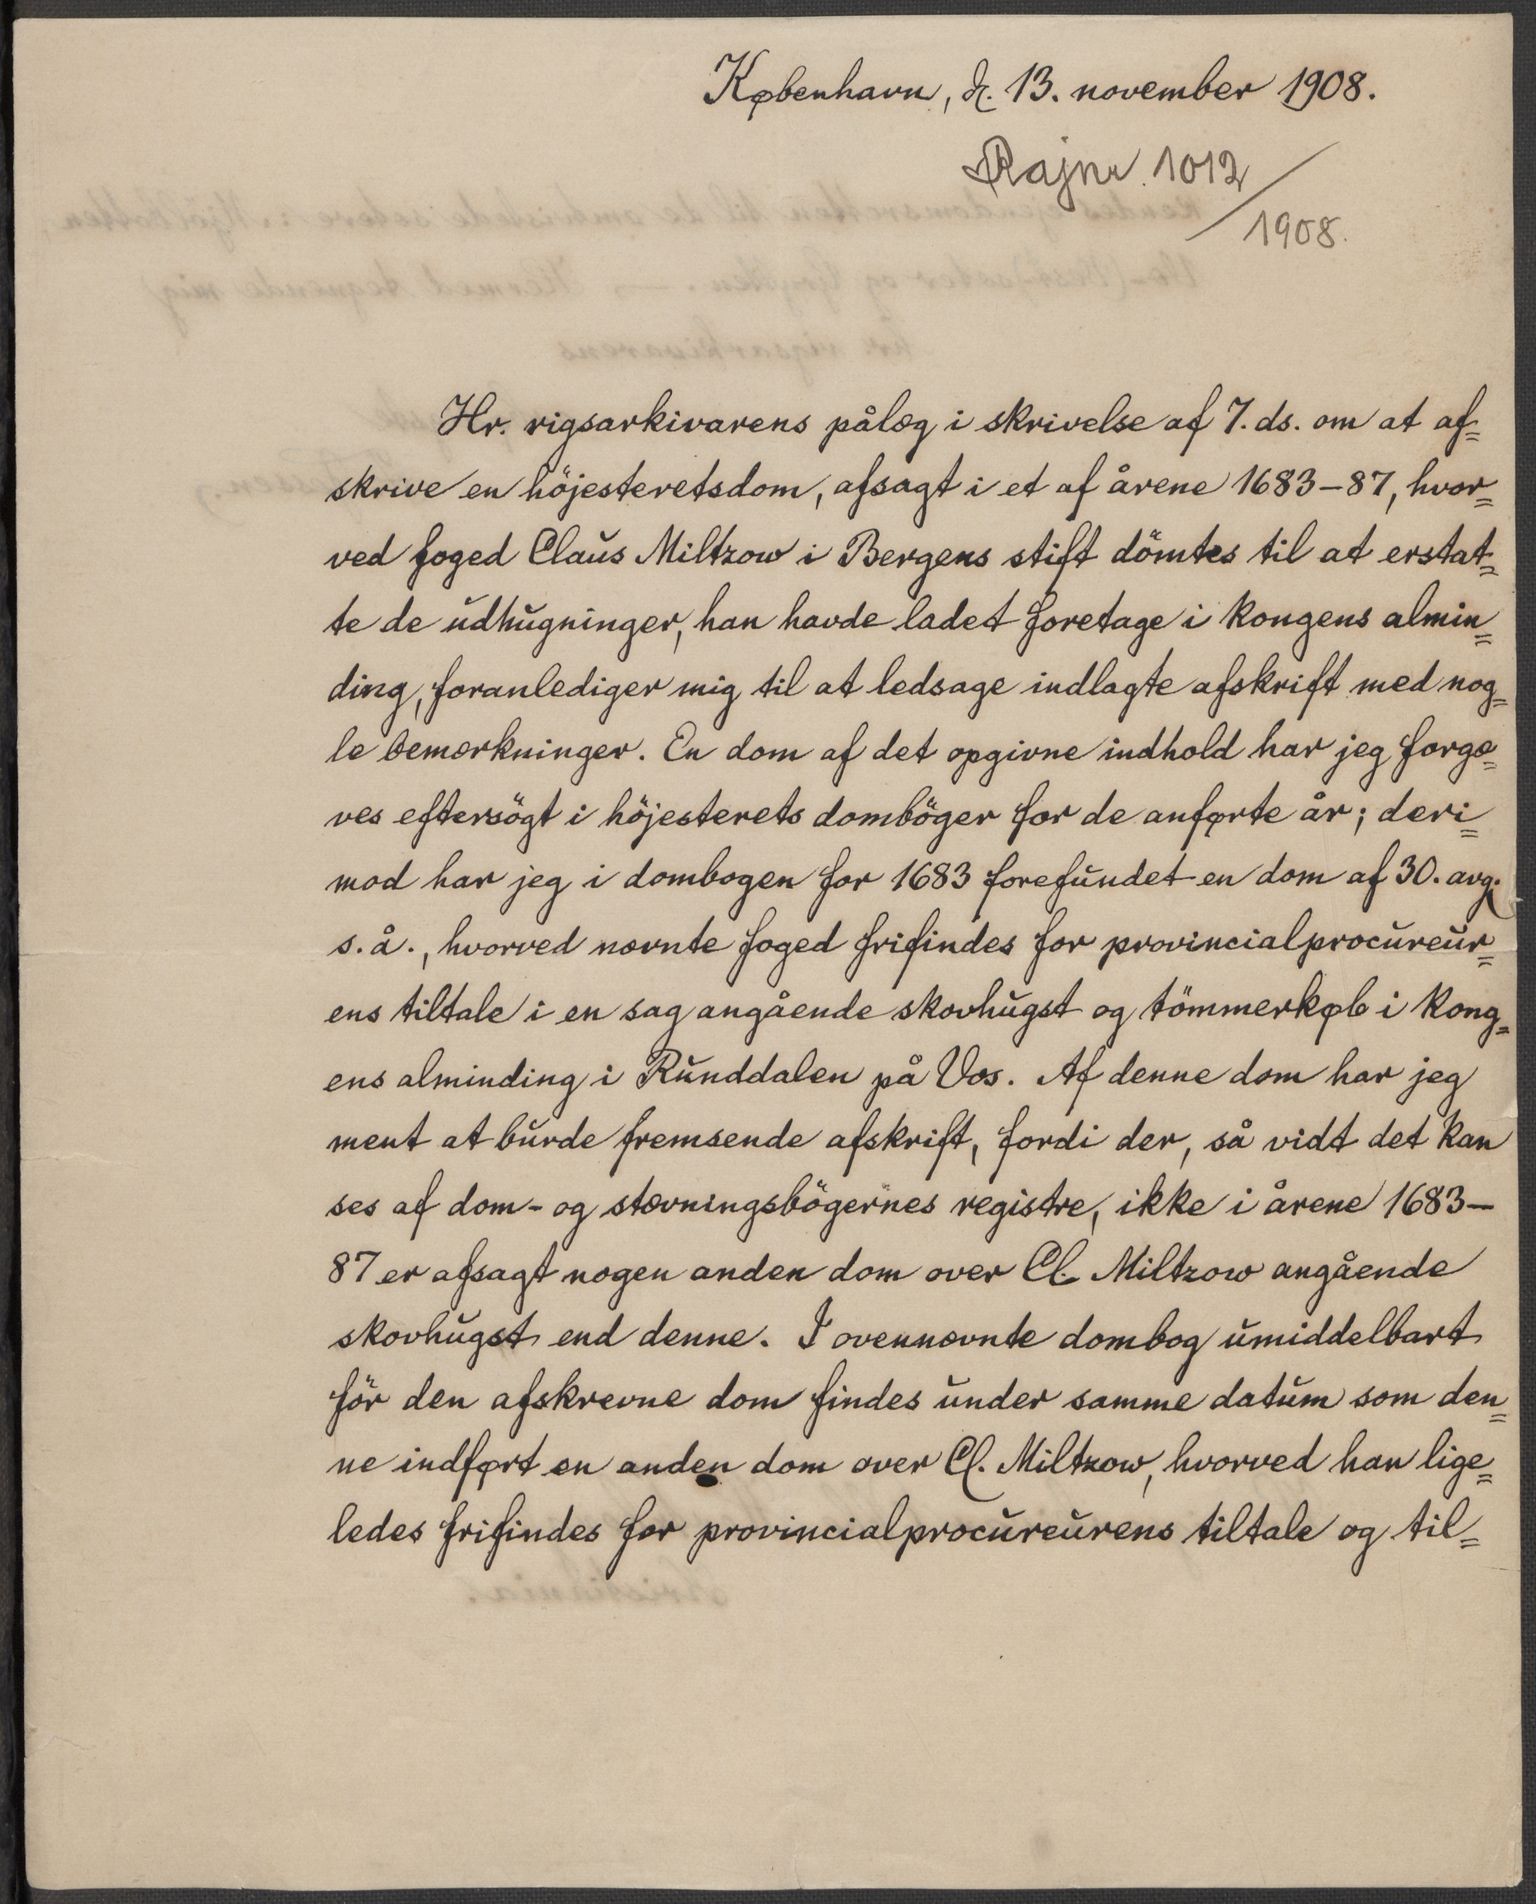 København, d. 13. november 1908.
Rajnr. 1012/1908.
Hr. rigsarkivarens pålæg i skrivelse af 7. ds. om at af=
skrive en höjesteretsdom, afsagt i et af årene 1683–87, hvor=
ved foged Claus Miltzow i Bergens stift dömtes til at erstat=
te de udhugninger, han havde ladet foretage i kongens almin=
ding, foranlediger mig til at ledsage indlagte afskrift med nog=
le bemærkninger. En dom af det opgivne indhold har jeg forgæ=
ves eftersögt i höjesterets domböger for de anførte år; deri=
mod har jeg i dombogen for 1683 forefundet en dom af 30. avg.
s. å., hvorved nævnte foged frifindes for provincialprocureur=
ens tiltale i en sag angående skovhugst og tömmerkøb i kong=
ens alminding i Runddalen på Vos. Af denne dom har jeg
ment at burde fremsende afskrift, fordi der, så vidt det kan
ses af dom- og stævningsbögernes registre, ikke i årene 1683–
87 er afsagt nogen anden dom over Cl. Miltzow angående
skovhugst end denne. I ovennævnte dombog umiddelbart
för den afskrevne dom findes under samme datum som den=
ne indført en anden dom over Cl. Miltzow, hvorved han lige=
ledes frifindes for provincialprocureurens tiltale og til=